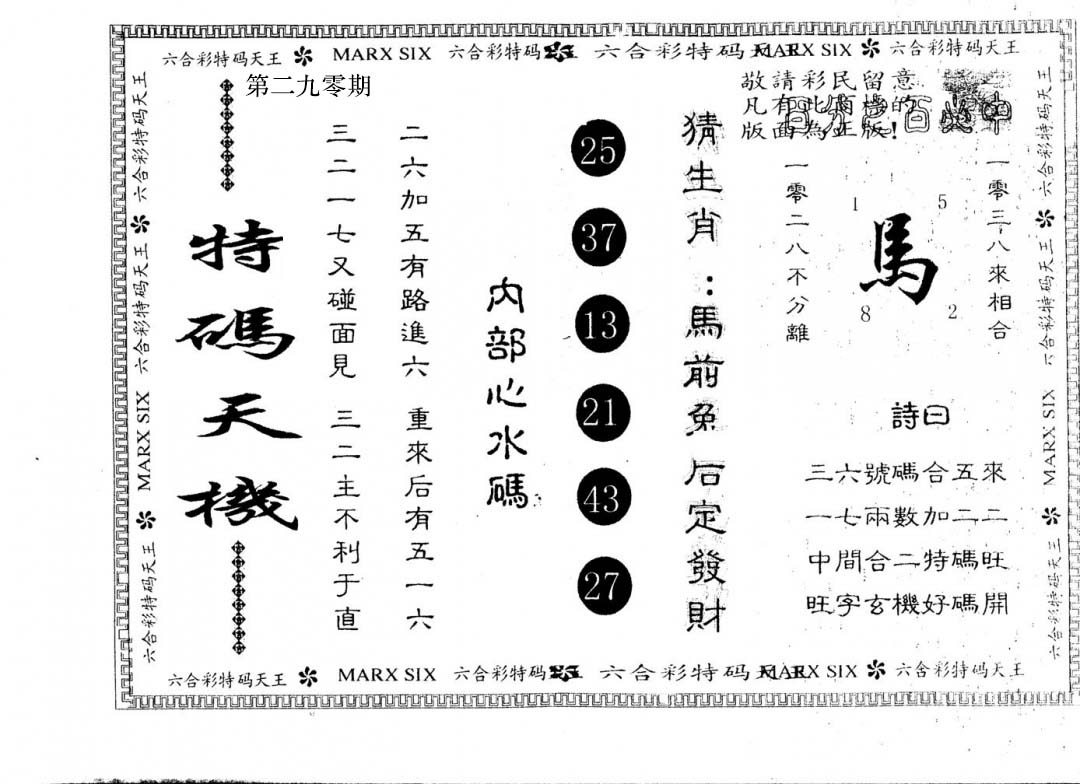 六合彩特码天王 MARX SIX 六合彩特码 六合彩特码天王 MARX SIX 六合彩特码天王
第二九零期
敬請彩民留意
凡有此
版面為正版!
特碼天機
三二一七又碰面見 三二主不利于直
二六加五有路進六 重來后有五一六
內部心水碼:
25
37
13
21
43
27
猜生肖：馬前兔后定發財
一零二八不分離
1
5
馬
8
2
一零三八來相合
詩曰
三六號碼合五來
一七兩數加二二
中間合二特碼旺
旺字玄機好碼開
六合彩特码天王 MARX SIX 六合彩特码 六合彩特码天王 MARX SIX 六合彩特码天王
六合彩特码天王 六合彩特码天王 MARX SIX 六合彩特码天王
六合彩特码天王 六合彩特码天王 MARX SIX 六合彩特码天王